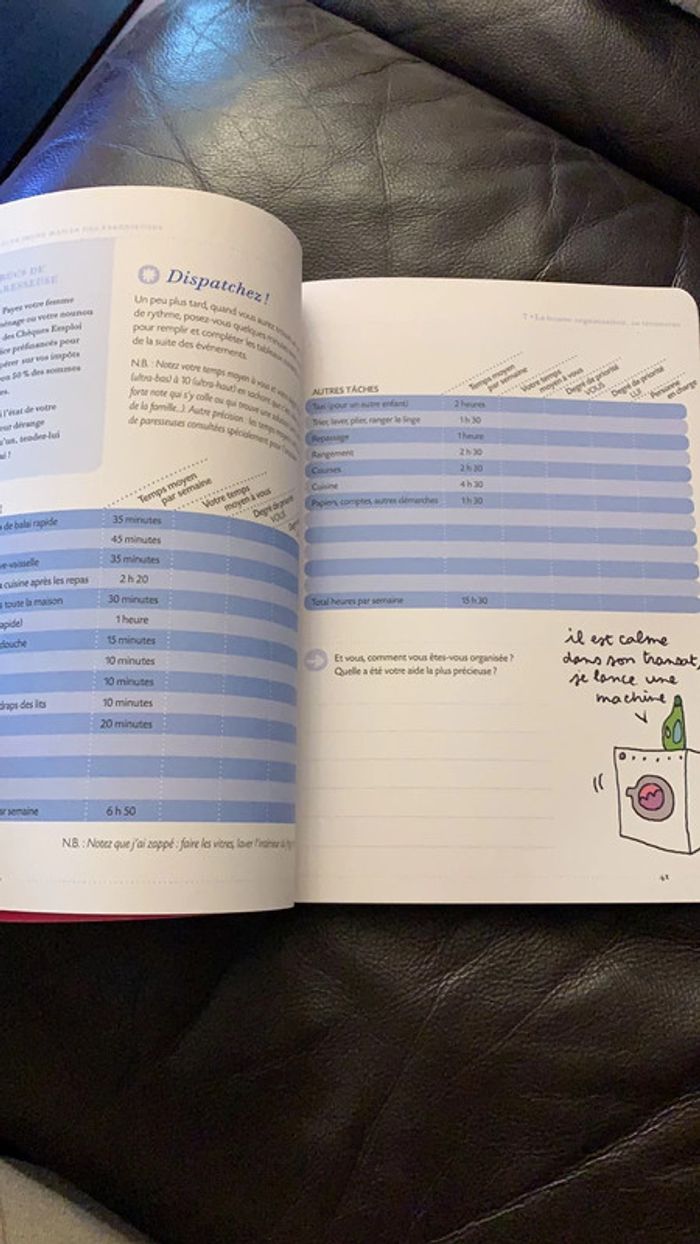 Payez votre femme
votre nounou
des Chèques Emploi
préfinancés pour
vos impôts
50 % des sommes
l'état de votre
dérange
qu'un, tendez-lui
Dispatchez !
Un peu plus tard, quand vous aurez
de rythme, posez-vous quelques
pour remplir et compléter les tableaux
de la suite des événements.
N.B. : Notez votre temps moyen à vous et
(ultra-bas) à 10 (ultra-haut) en sachant que
forte note qui s'y colle ou qui trouve une solution
de la famille...). Autre précision : les temps moyens
de paresseuses consultées spécialement pour
Temps moyen
par semaine
Votre temps
moyen à vous
Degré de priorité
VOUS
de balai rapide 35 minutes
45 minutes
35 minutes
cuisine après les repas 2 h 20
toute la maison 30 minutes
1 heure
douche 15 minutes
10 minutes
10 minutes
draps des lits 10 minutes
20 minutes
par semaine 6 h 50
N.B. : Notez que j'ai zappé : faire les vitres, laver l'intérieur du
7 • La bonne organisation,
AUTRES TÂCHES
Temps moyen
par semaine
Votre temps
moyen à vous
Degré de priorité
VOUS
Degré de priorité
LUI
Personne
en charge
Taxi (pour un autre enfant) 2 heures
Trier, laver, plier, ranger le linge 1 h 30
Repassage 1 heure
Rangement 2 h 30
Courses 2 h 30
Cuisine 4 h 30
Papiers, comptes, autres démarches 1 h 30
Total heures par semaine 15 h 30
Et vous, comment vous êtes-vous organisée ?
Quelle a été votre aide la plus précieuse ?
il est calme
dans son transat,
je lance une
machine